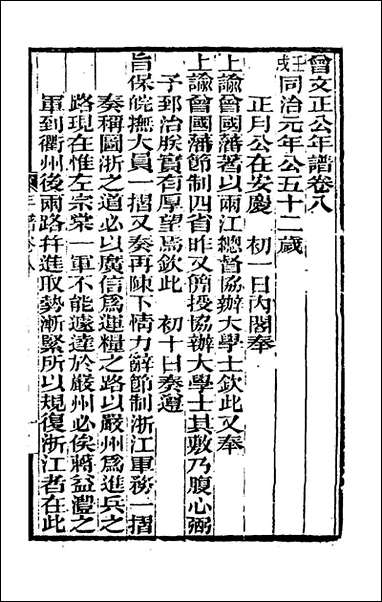 曾文正公年譜卷八
壬戌同治元年公五十二歲
正月公在安慶　初一日內閣奉
上諭曾國藩著以兩江總督協辦大學士欽此又奉
上諭曾國藩節制四省昨又簡授協辦大學士其敷乃腹心弼
予郅治朕實有厚望焉欽此　初十日奏遵
旨保皖撫大員一摺又奏再陳下情力辭節制浙江軍務一摺
奏稱圖浙之道必以廣信爲運糧之路以嚴州爲進兵之
路現在惟左宗棠一軍不能遽達於嚴州必俟蔣益澧之
軍到衢州後兩路幷進取勢漸緊所以規復浙江者在此